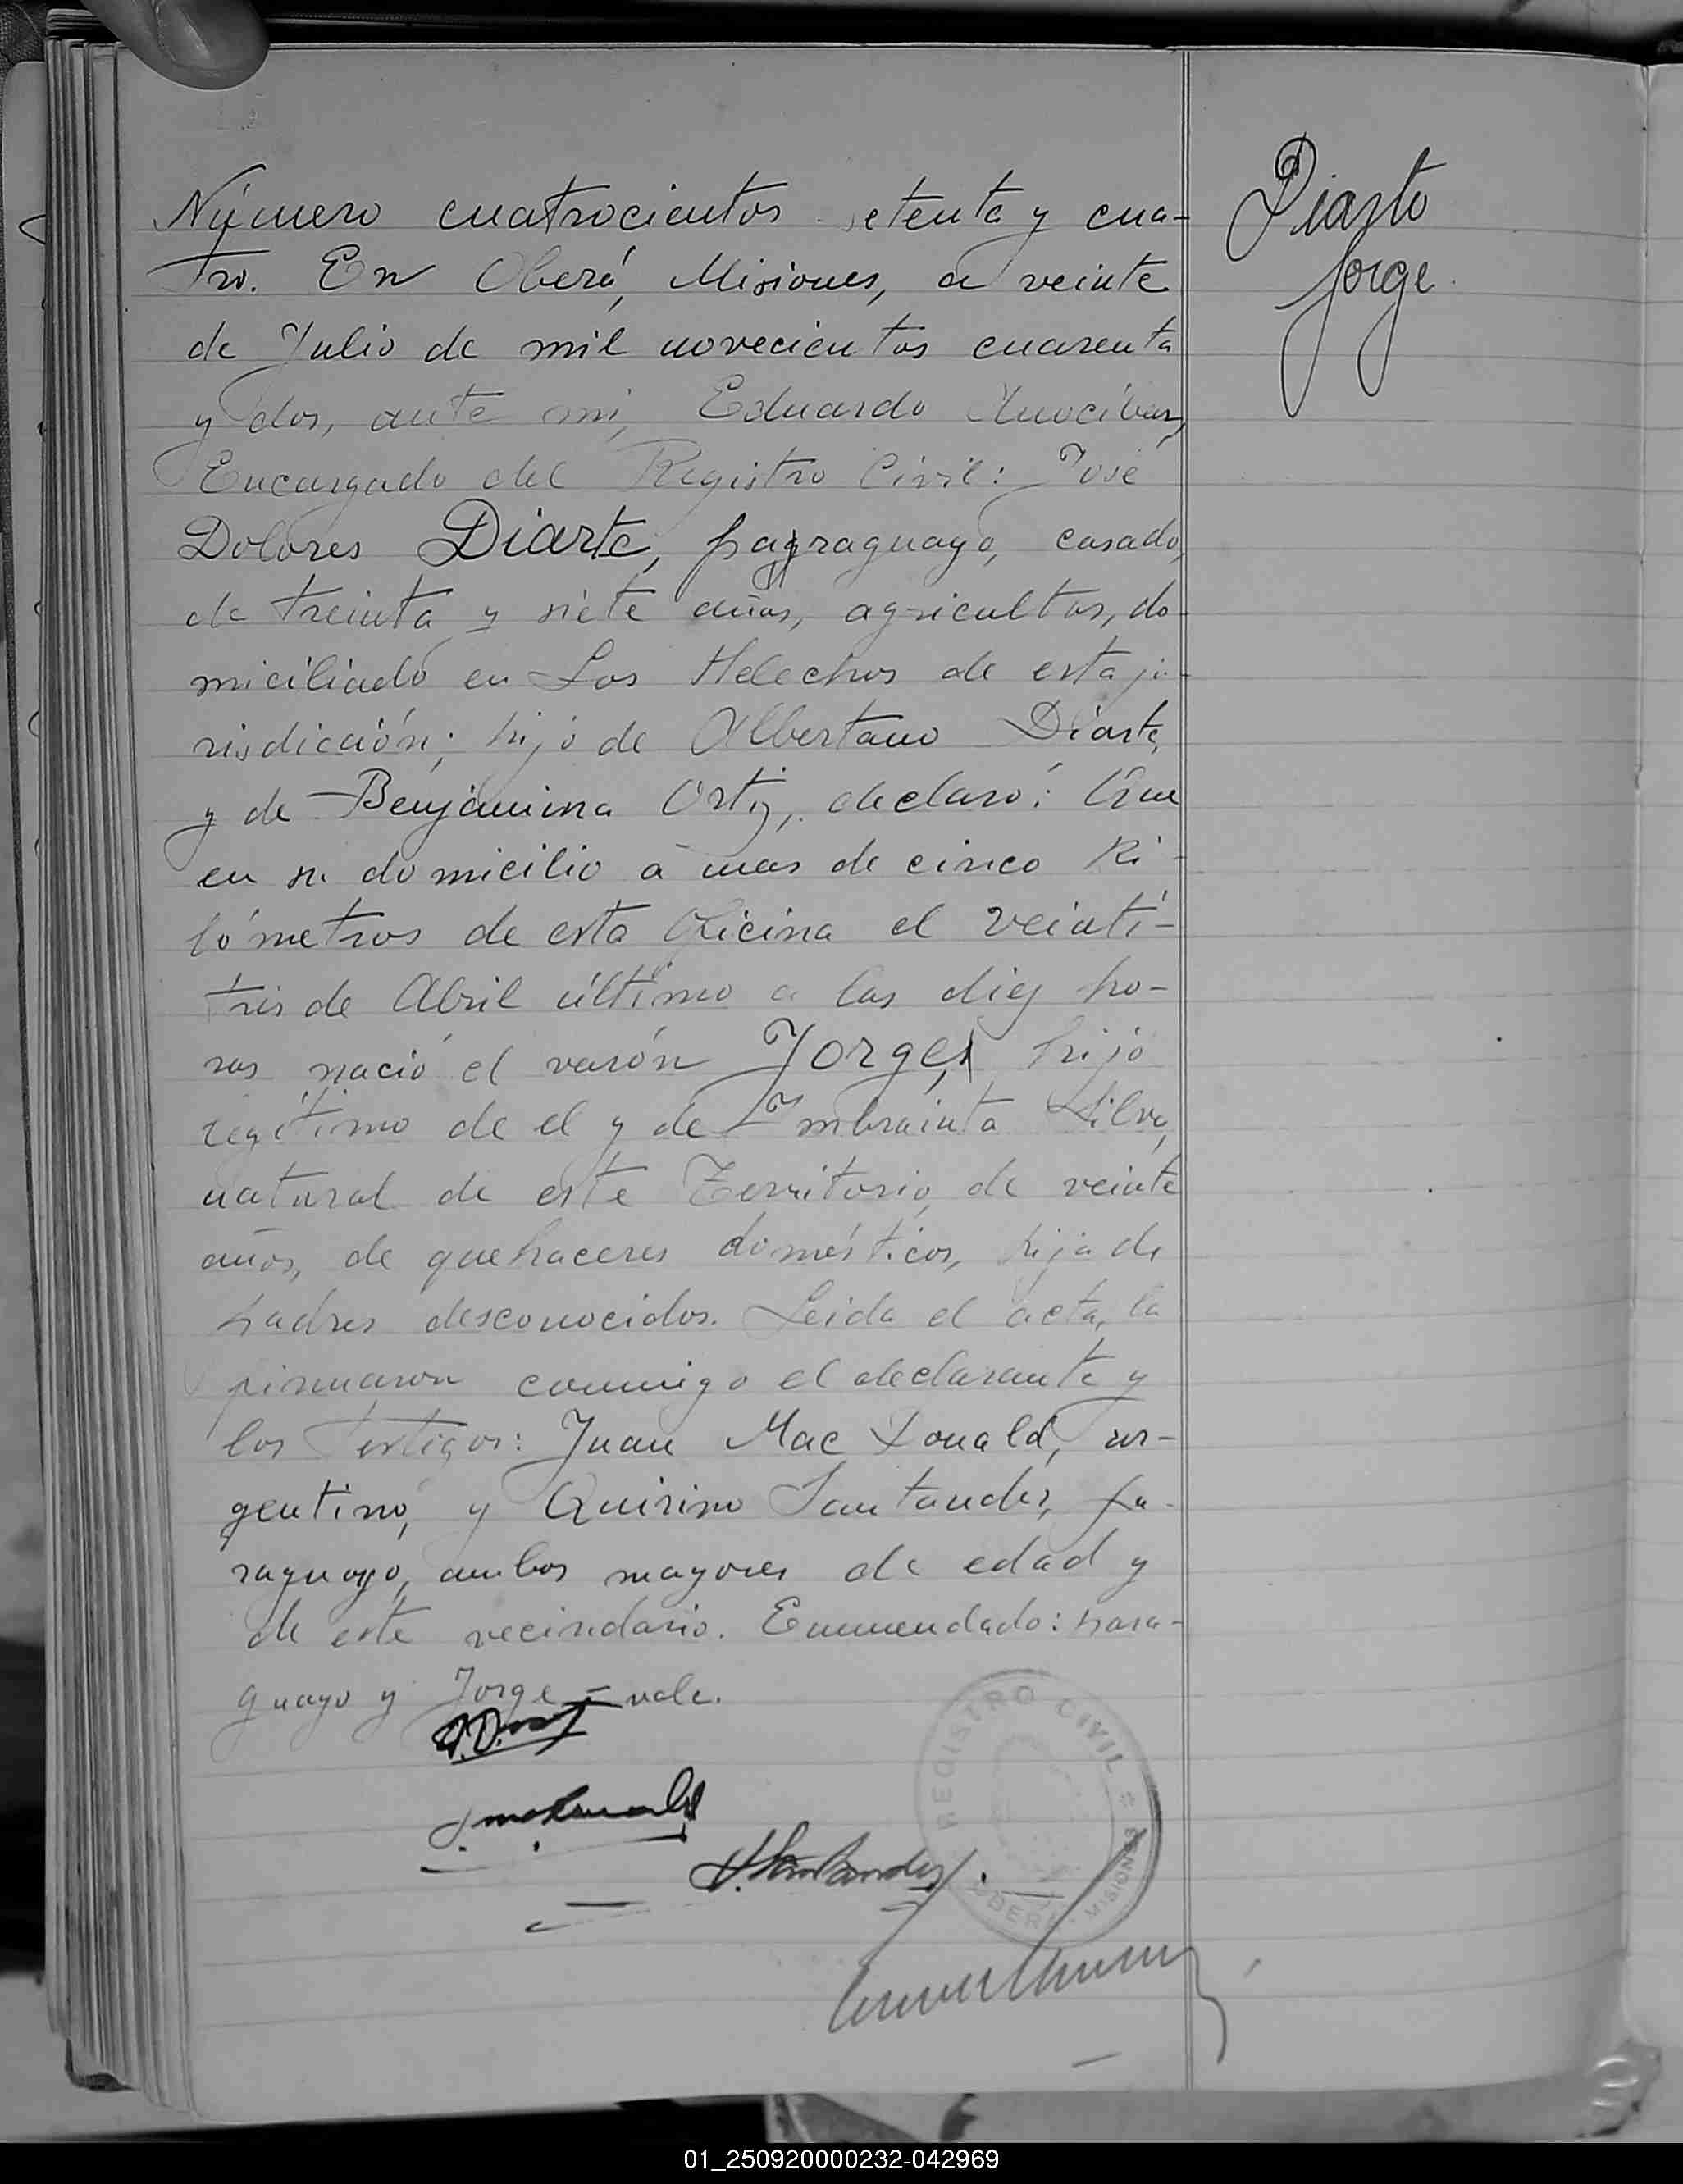 Número cuatrocientos setenta y cua-
tro. En Oberá, Misiones, a veinte
de Julio de mil novecientos cuarenta
y dos, ante mi, Eduardo
Encargado del Registro Civil: José
Dolores Diarte, paraguayo, casado,
de treinta y siete años, agricultor, do-
miciliado en Los Helechos de esta ju-
risdicción; hijo de Albertano Diarte,
y de Benjamina Ortiz, declaró: Que
en su domicilio a mas de cinco Ki-
lómetros de esta Oficina el veinti-
trés de Abril último a las diez ho-
ras nació el varón Jorge, hijo
legítimo de el y de Silva,
natural de este Territorio, de veinte
años, de quehaceres domésticos, hija de
padres desconocidos. Leida el acta, la
firmaron conmigo el declarante y
los testigos: Juan Mac Donald, ar-
gentino, y Quirino Santander, pa-
raguayo, ambos mayores de edad y
de este vecindario. Enmendado: para-
guayo y Jorge - vale.
Diarte
Jorge
REGISTRO CIVIL
OBERÁ - MISIONES
01_250920000232-042969